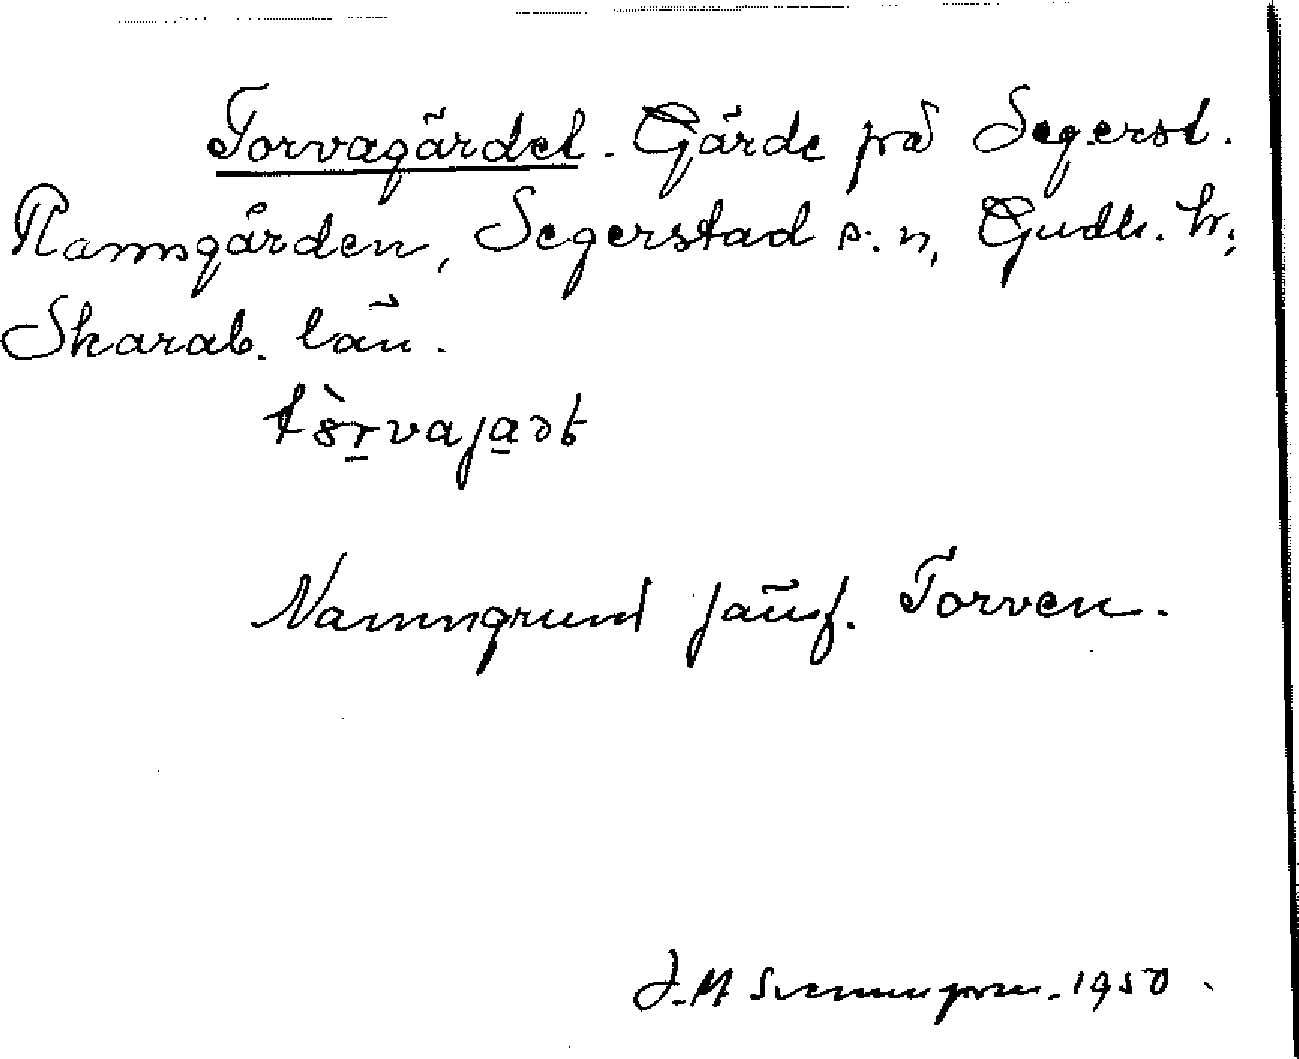 Torvagärdet. Gärde på Segerst.
Ramsgården, Segerstad s:n, Gudh. hr;
Skarab. län.
tòrvajadt
Namngrund jämf. Torven.
J. M. 1950.